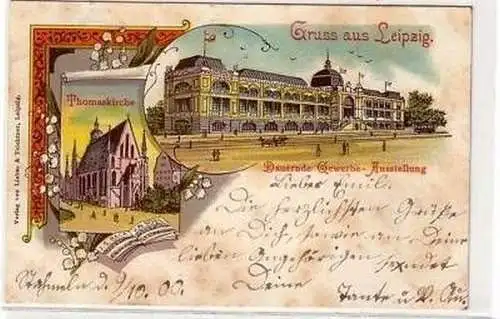 Gruss aus Leipzig.
Thomaskirche
Dauernde Gewerbe-Ausstellung
Verlag von & Teichtner, Leipzig.
Lieber Emil.
Die herzlichsten Grüße
an Dich, sowie an deine
lieben Angehörigen sendet
Deine Tante u.
Stahmeln d. 9/10.00.